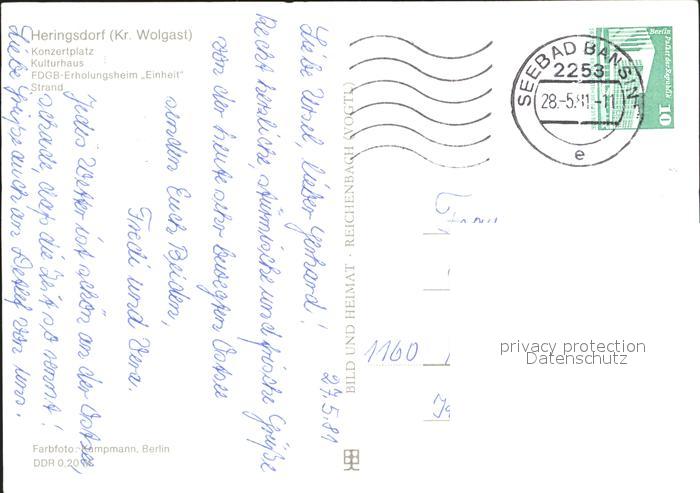 Heringsdorf (Kr. Wolgast)
Konzertplatz
Kulturhaus
FDGB-Erholungsheim „Einheit"
Strand
27.5.81
Liebe Ursel, lieber Gerhard!
Recht herzliche, stürmische und frische Grüße
von der heute sehr bewegten Ostsee
senden Euch Beiden,
Fredi und Vera.
Jedes Wetter ist schön an der Ostsee,
schade, daß die Zeit so rennt!
Liebe Grüße auch an Detlef von uns.
Farbfoto: Kampmann, Berlin
DDR 0,20
BILD UND HEIMAT · REICHENBACH (VOGTL)
SEEBAD BANSIN
2253
28.-5.81.-11
e
Berlin Palast der Republik
10
1160
privacy protection
Datenschutz